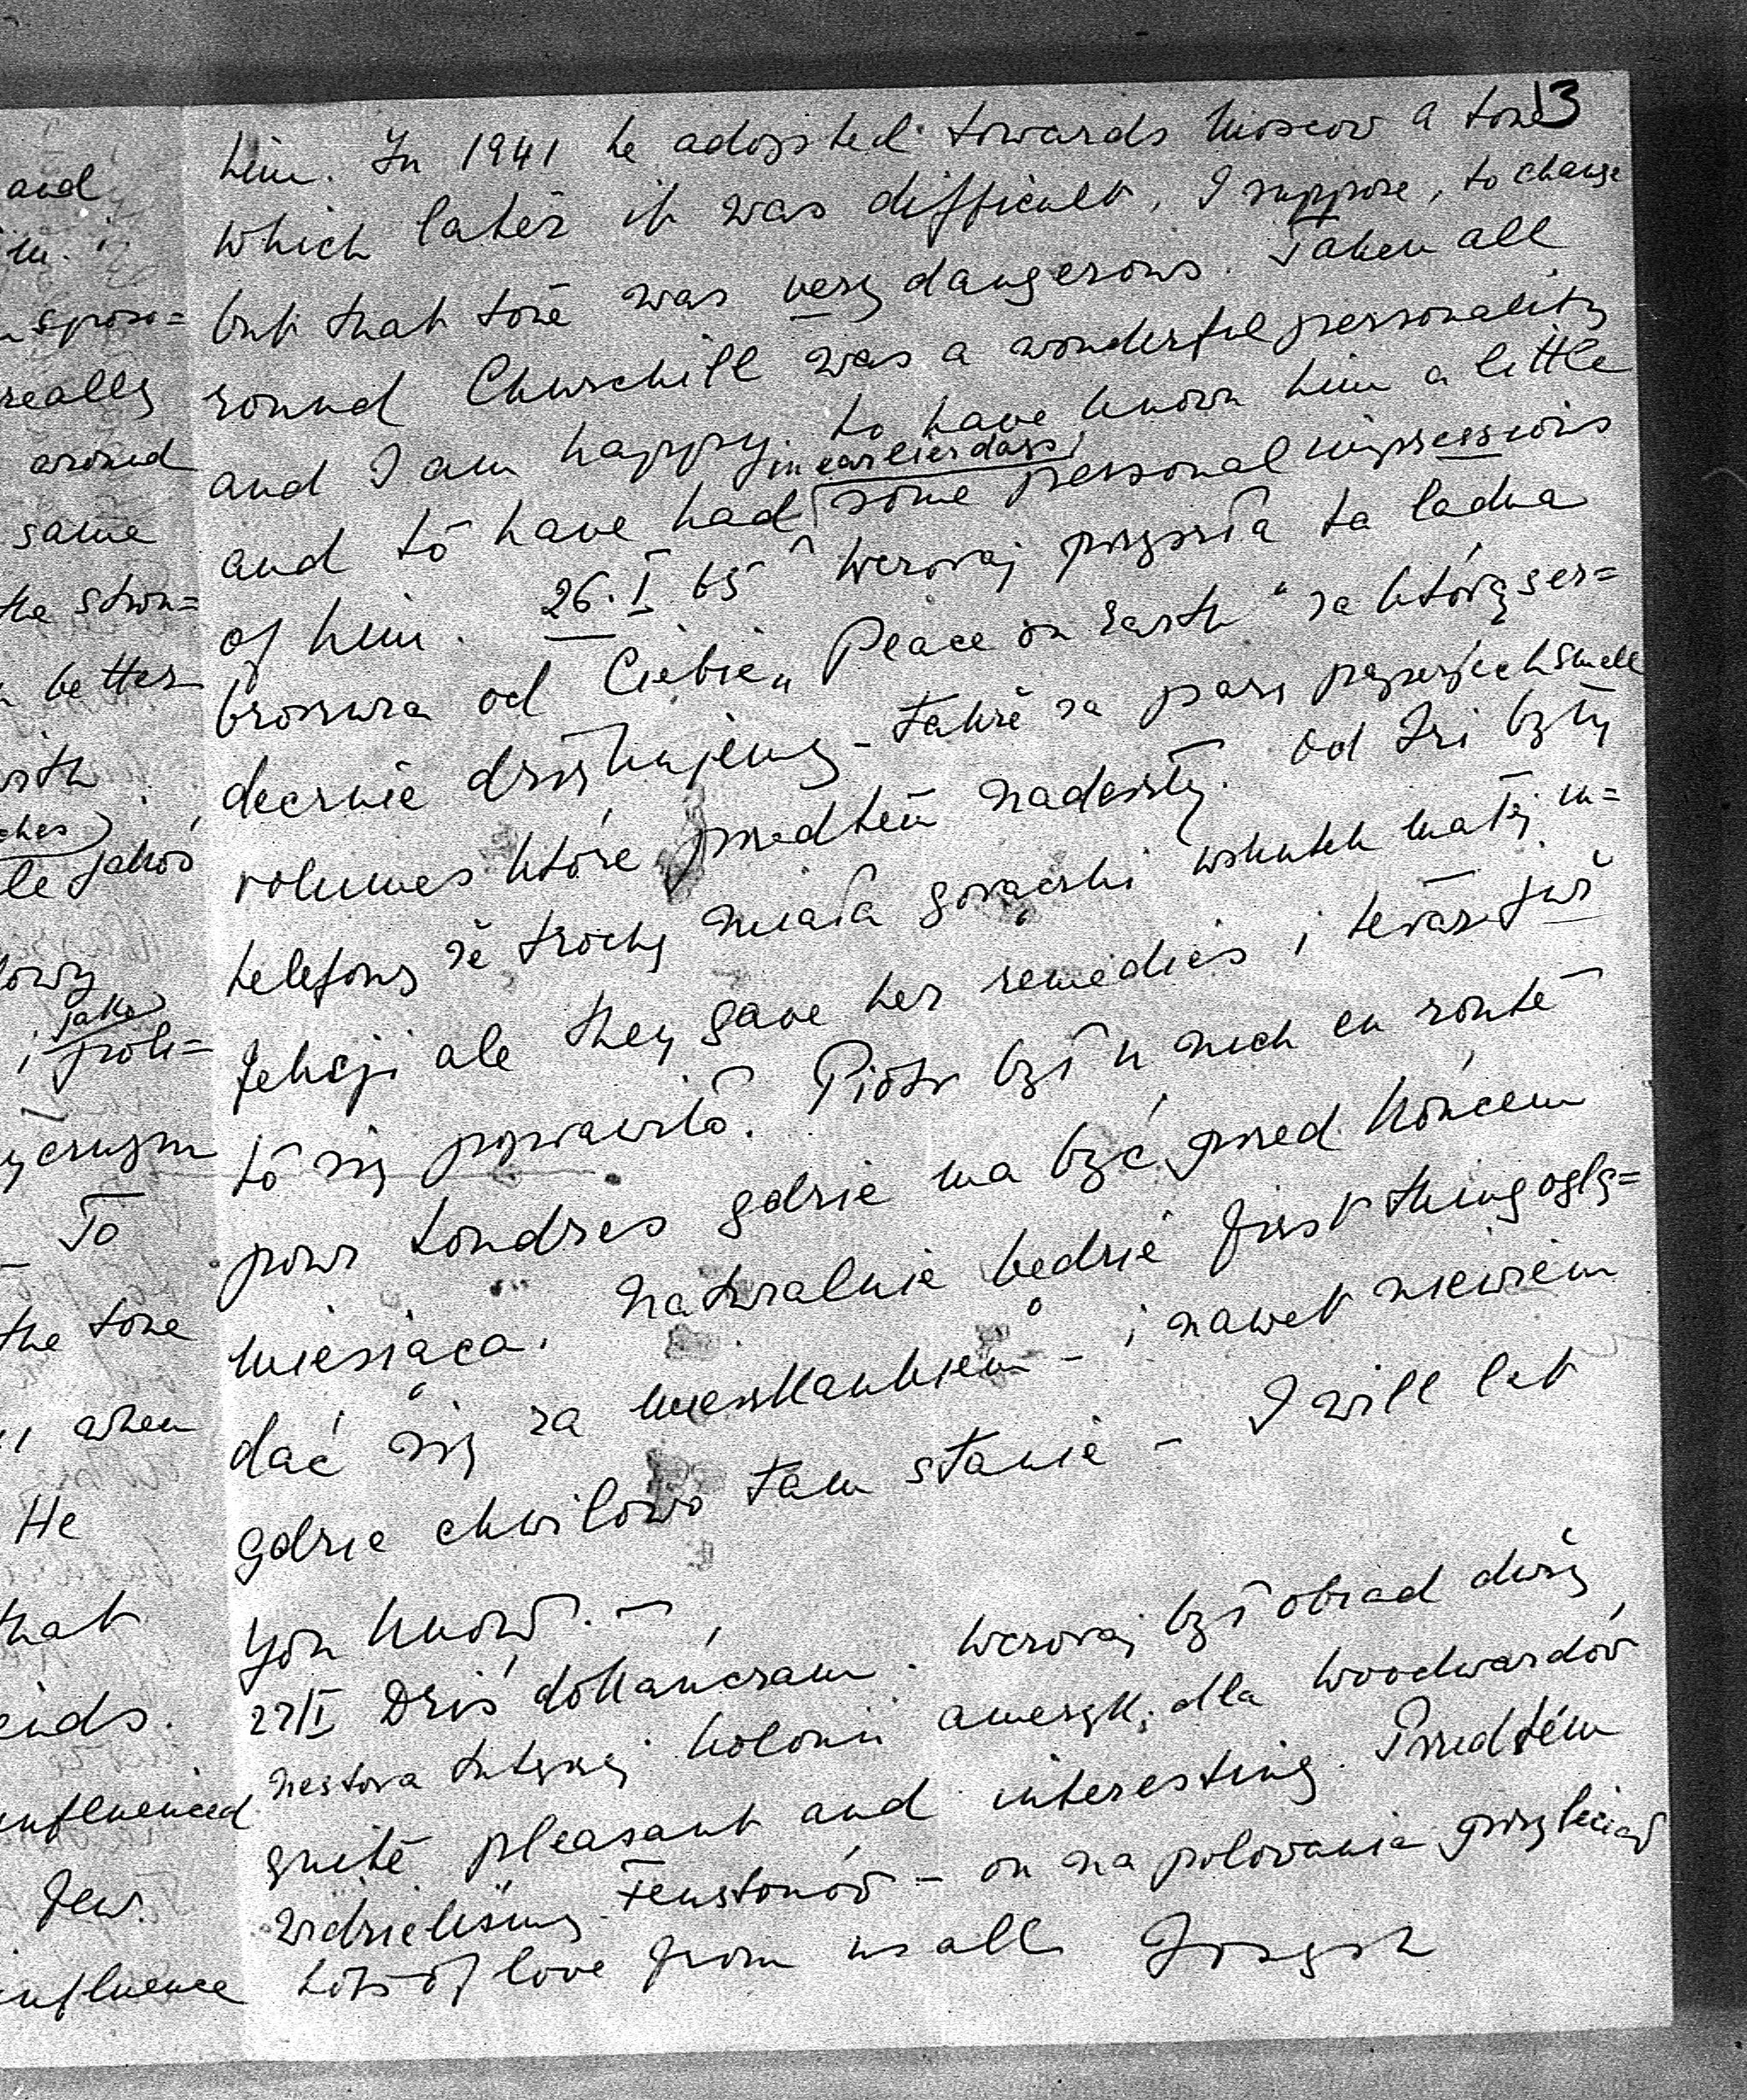 13
him. In 1941 he adopted towards Moscow a tone
which later it was difficult, I suppose, to change
but that tone was very dangerous. Taken all
round Churchill was a wonderful personality
and I am happy to have known him a little
in earlier days
and to have had some personal impressions
of him. 26.I 65 Wczoraj przyszła ta ładna
broszura od Ciebie „Peace on Earth" za którą ser=
decznie dziękujemy - także za parę small
volumes które przedtem nadeszły. Od Izi były
telefony że trochę miała gorączki wskutek małej in=
fekcji ale they gave her remedies i teraz już
to się poprawiło. Piotr był u nich en route
pour Londres gdzie ma być przed końcem
miesiąca. Naturalnie będzie first thing oglą=
dać się za mieszkaniem - i nawet niewiem
gdzie chwilowo tam stanie - I will let
you know. —
27/I Dziś dokańczam. Wczoraj był obiad duży
nestora tutejszej kolonii ameryk. dla Woodwardów
quite pleasant and interesting. Przedtem
widzieliśmy - on na polowania przyleciał
Lots of love from us all Józych
and
m.
really
around
same
the stron=
better
le jakoś
jako
To
the tone
when
He
that
influenced
Jew.
influence